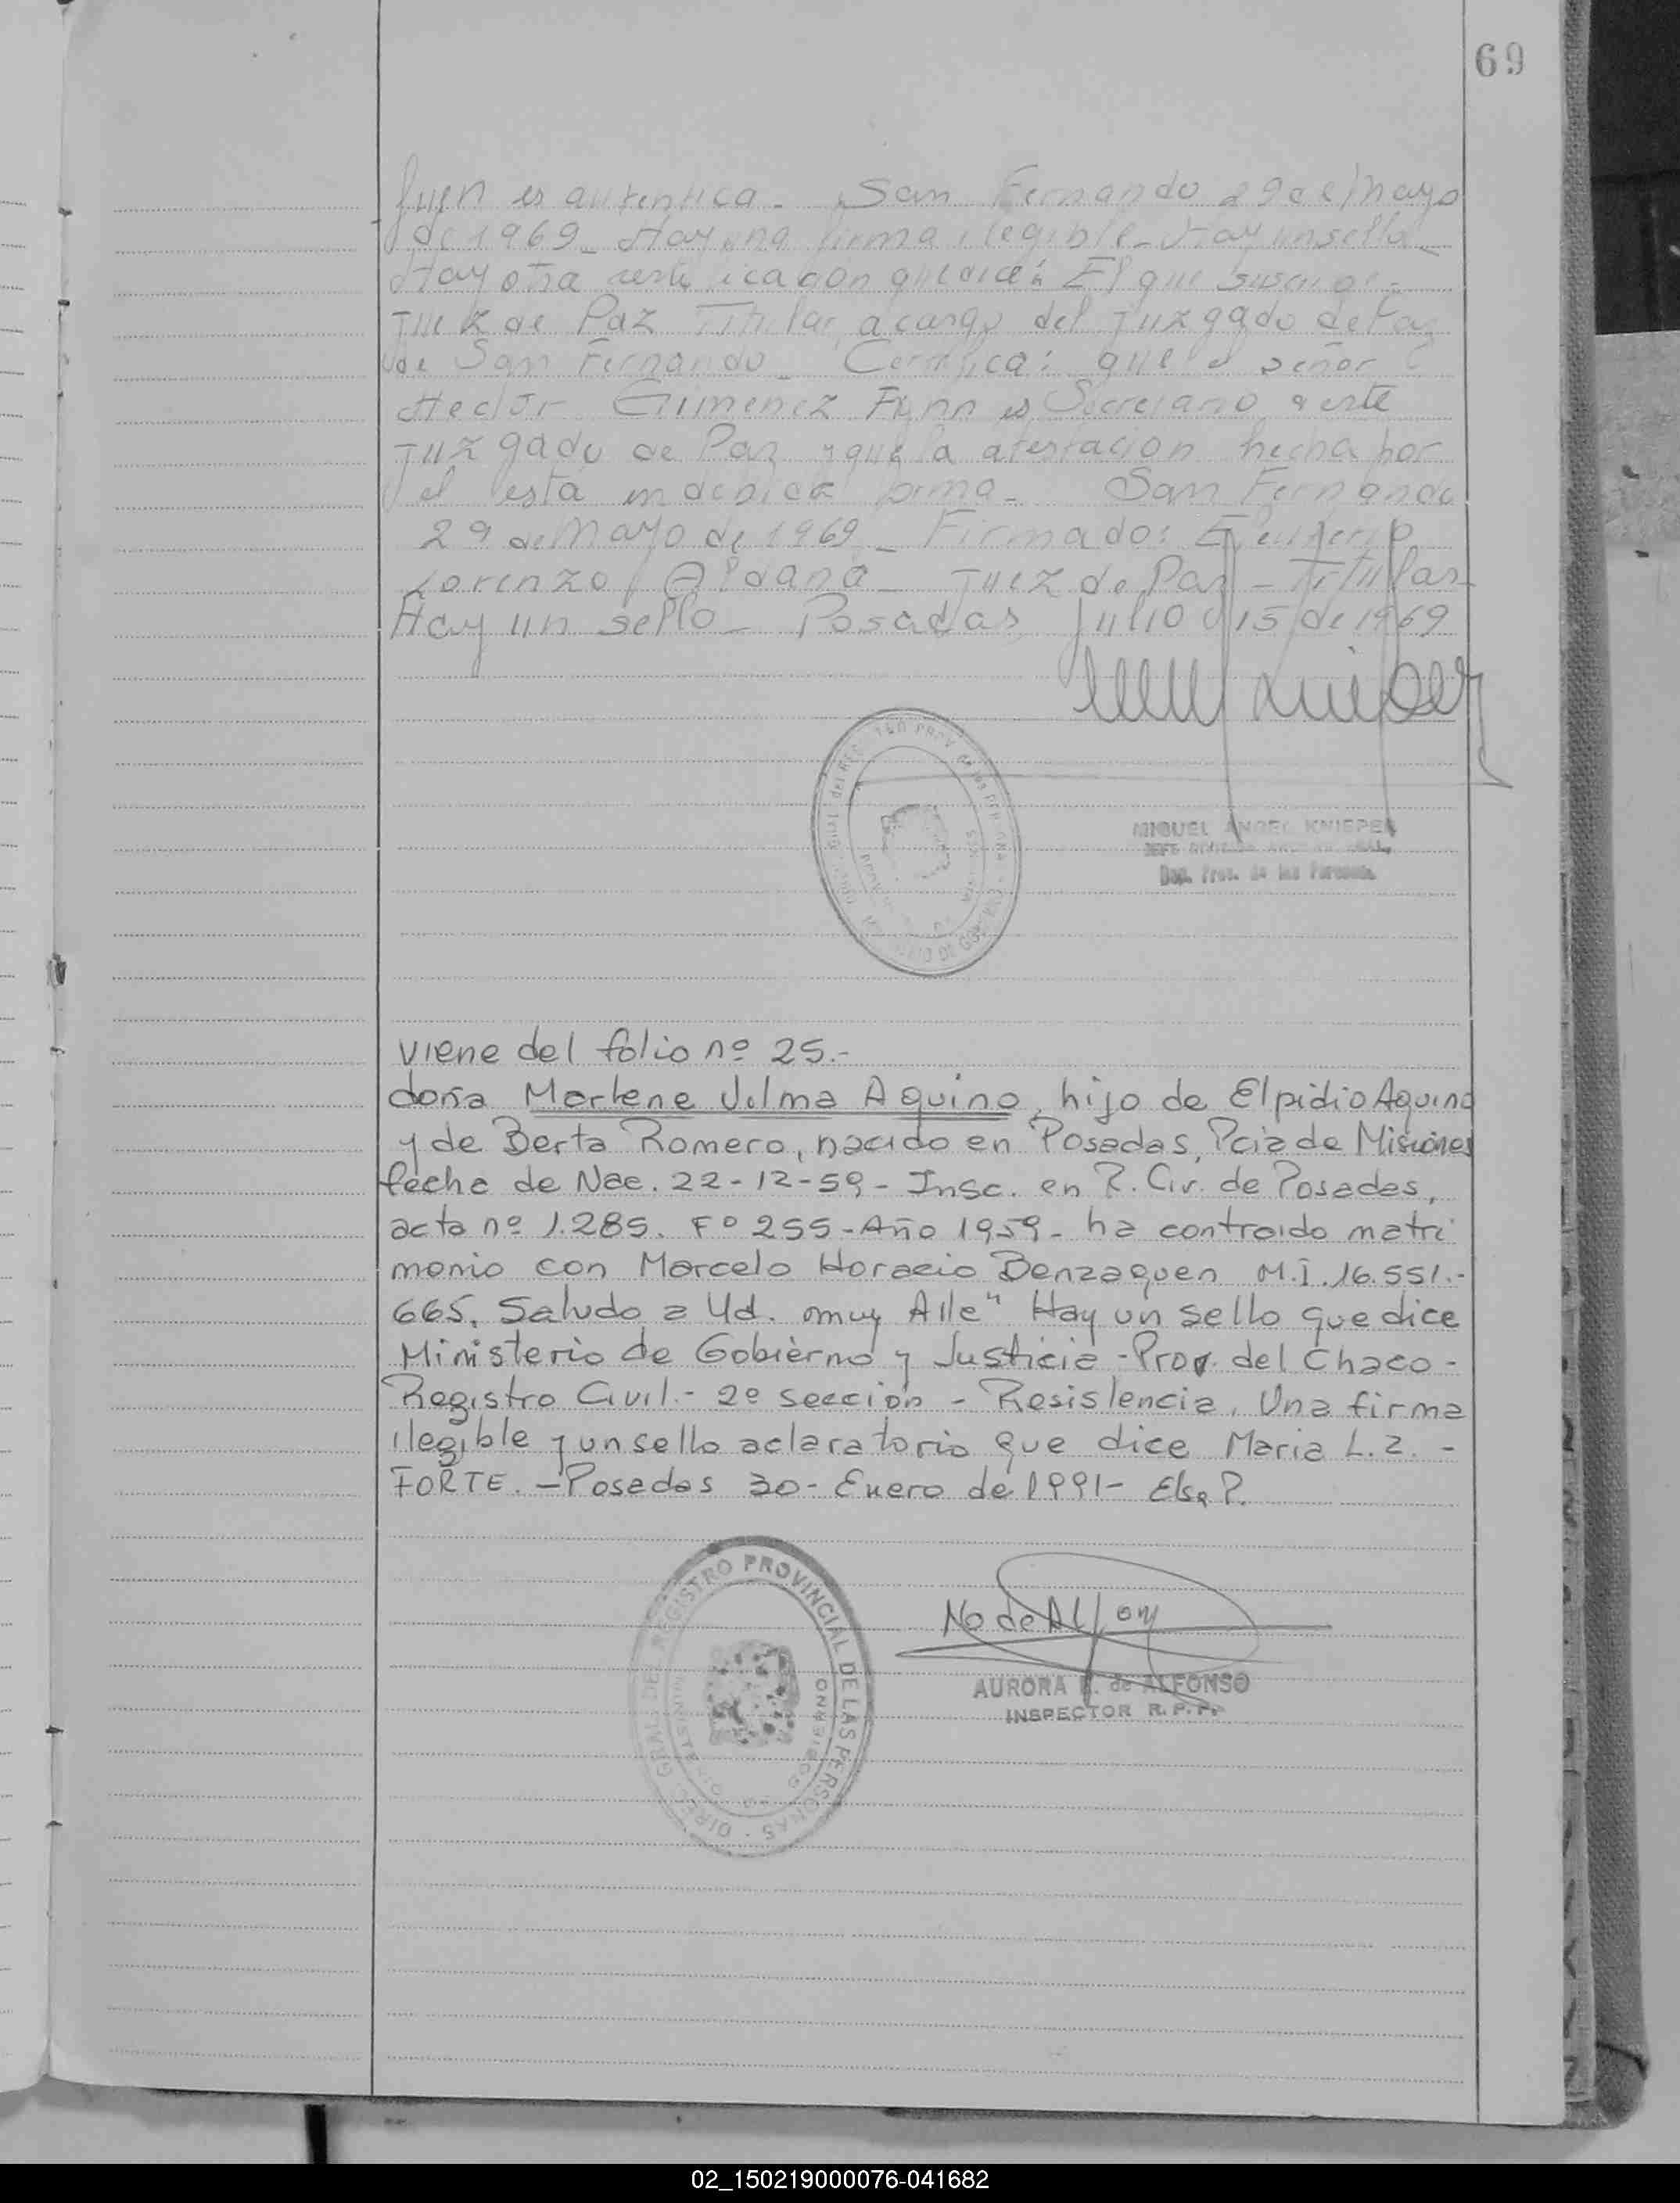 69
es autentica. San Fernando 29 de Mayo
de 1969_ Hay una firma ilegible_ Hay un sello_
Hay otra certificacion que dice: El que suscribe_
Juez de Paz Titular a cargo del Juzgado de Paz
de San Fernando_ Certifica: que el señor
Hector Gimenez Fynn es Secretario de este
Juzgado de Paz y que la atestacion hecha por
el está en debida forma_ San Fernando
29 de Mayo de 1969_ Firmado: Eleuterio
Lorenzo Aldana_ Juez de Paz_Titular_
Hay un sello_ Posadas, Julio 15 de 1969
MIGUEL ANGEL KNIEPER
Dep. Prov. de las Personas
viene del folio nº 25.-
doña Marlene Vilma Aquino, hijo de Elpidio Aquino
y de Berta Romero, nacido en Posadas, Pcia de Misiones
fecha de Nac. 22-12-59- Insc. en R. Civ. de Posadas,
acta nº 1.285. Fº 255-Año 1959- ha contraido matri
monio con Marcelo Horacio Benzaquen M.I. 16.551.-
665. Saludo a Ud. muy Atte" Hay un sello que dice
Ministerio de Gobierno y Justicia -Prov. del Chaco-
Registro Civil.- 2º sección - Resistencia. Una firma
ilegible y un sello aclaratorio que dice Maria L. Z. -
FORTE. -Posadas 30- Enero de 1991- Elsa P.
DIREC. GRAL. DEL REGISTRO PROVINCIAL DE LAS PERSONAS
AURORA N. de ALFONSO
INSPECTOR R.P.P.
02_150219000076-041682